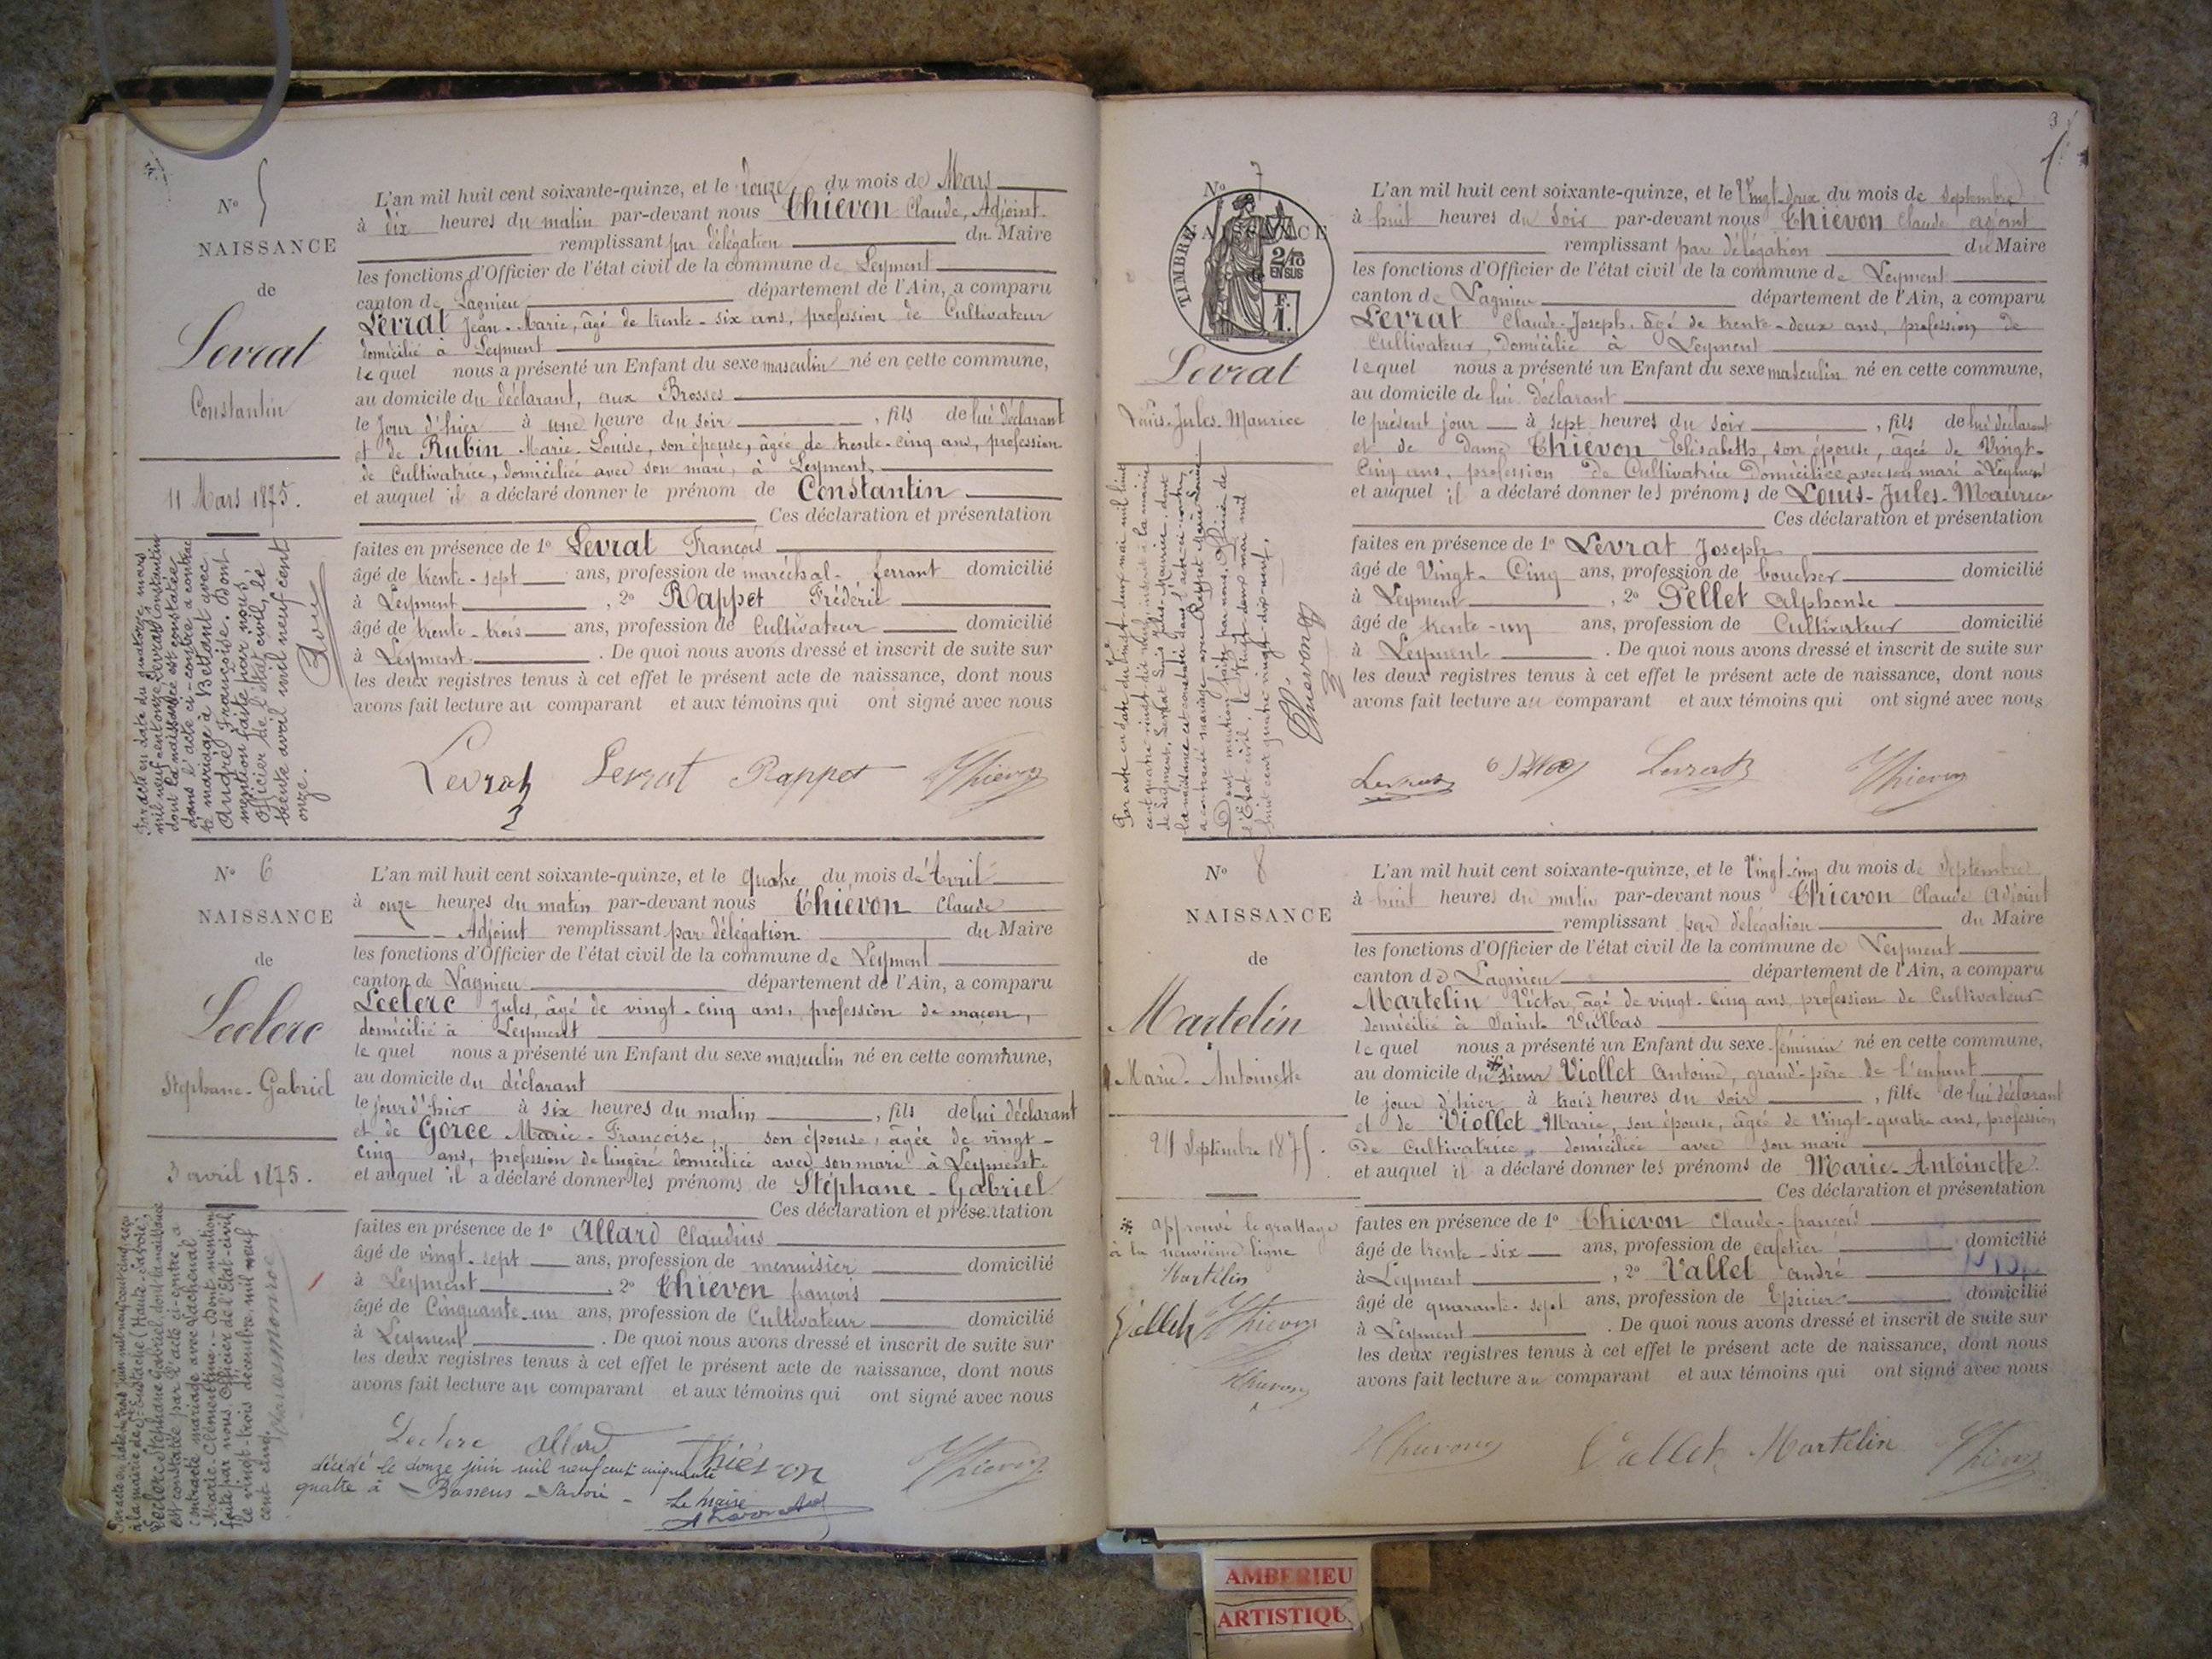 N° 5
NAISSANCE
de
Levrat
Constantin
11 Mars 1875.
Par acte en date du quatorze mars
mil neuf cent onze, Levrat Constantin
dont la naissance est constatée
dans l'acte ci-contre a contrac
té mariage à Bettant avec
André Françoise. Dont
mention faite par nous
Officier de l'état civil, le
trente avril mil neuf cent
onze.
L'an mil huit cent soixante-quinze, et le douze du mois de Mars
à dix heures du matin par-devant nous Thiévon Claude, Adjoint
remplissant par délégation du Maire
les fonctions d'Officier de l'état civil de la commune de Leyment
canton de Lagnieu département de l'Ain, a comparu
Levrat Jean-Marie, âgé de trente-six ans, profession de Cultivateur
domicilié à Leyment
lequel nous a présenté un Enfant du sexe masculin né en cette commune,
au domicile du déclarant, aux Brosses
le jour d'hier à une heure du soir, fils de lui déclarant
et de Rubin Marie-Louise, son épouse, âgée de trente-cinq ans, profession
de Cultivatrice, domiciliée avec son mari, à Leyment,
et auquel il a déclaré donner le prénom de Constantin
Ces déclaration et présentation
faites en présence de 1° Levrat François
âgé de trente-sept ans, profession de maréchal-ferrant domicilié
à Leyment, 2° Rappet Fréderic
âgé de trente-trois ans, profession de Cultivateur domicilié
à Leyment. De quoi nous avons dressé et inscrit de suite sur
les deux registres tenus à cet effet le présent acte de naissance, dont nous
avons fait lecture au comparant et aux témoins qui ont signé avec nous
Levrat Levrat Rappet Thievon
N° 6
NAISSANCE
de
Leclerc
Stéphane-Gabriel
3 avril 1875.
Par acte en date du trois juin mil neuf cent cinq reçu
à la mairie de St Eustache (Haute-Savoie),
Leclerc Stéphane Gabriel dont la naissance
est constatée par l'acte ci-contre, a
contracté mariage avec Lachenal
Marie-Clémentine. Dont mention
faite par nous Officier de l'Etat-civil,
le vingt-trois décembre mil neuf
cent cinq.
L'an mil huit cent soixante-quinze, et le quatre du mois de Avril
à onze heures du matin par-devant nous Thiévon Claude
Adjoint remplissant par délégation du Maire
les fonctions d'Officier de l'état civil de la commune de Leyment
canton de Lagnieu département de l'Ain, a comparu
Leclerc Jules, âgé de vingt-cinq ans, profession de maçon,
domicilié à Leyment
lequel nous a présenté un Enfant du sexe masculin né en cette commune,
au domicile du déclarant
le jour d'hier à six heures du matin, fils de lui déclarant
et de Gorce Marie-Françoise, son épouse, âgée de vingt-
cinq ans, profession de lingère domiciliée avec son mari à Leyment
et auquel il a déclaré donner les prénoms de Stéphane-Gabriel
Ces déclaration et présentation
faites en présence de 1° Allard Claudius
âgé de vingt-sept ans, profession de menuisier domicilié
à Leyment, 2° Thievon françois
âgé de Cinquante-un ans, profession de Cultivateur domicilié
à Leyment. De quoi nous avons dressé et inscrit de suite sur
les deux registres tenus à cet effet le présent acte de naissance, dont nous
avons fait lecture au comparant et aux témoins qui ont signé avec nous
Leclerc Allard Thiévon Thievon
décédé le douze juin mil neuf cent cinquante
quatre à Bassens - Savoie -
Le Maire
3
N° 7
NAISSANCE
de
TIMBRE
2/10
EN SUS
F.
1.
Levrat
Louis-Jules-Maurice
Par acte en date du vingt-deux mai mil huit
cent quatre vingt dix neuf, inscrit à la mairie
de Leyment, Levrat Louis-Jules-Maurice, dont
la naissance est constatée dans l'acte ci-contre,
a contracté mariage avec Rappet Marie-Louise.
Dont mention faite par nous, Officier de
l'Etat civil, le vingt deux mai mil
huit cent quatre vingt-dix-neuf.
Thievon
L'an mil huit cent soixante-quinze, et le Vingt-deux du mois de Septembre
à huit heures du Soir par-devant nous Thiévon Claude adjoint
remplissant par délégation du Maire
les fonctions d'Officier de l'état civil de la commune de Leyment
canton de Lagnieu département de l'Ain, a comparu
Levrat Claude-Joseph, âgé de trente-deux ans, profession de
Cultivateur, Domicilié à Leyment
lequel nous a présenté un Enfant du sexe masculin né en cette commune,
au domicile de lui déclarant
le présent jour à sept heures du soir, fils de lui déclarant
et de dame Thievon Elisabeth, son épouse, âgée de Vingt-
Cinq ans, profession de Cultivatrice Domiciliée avec son mari à Leyment
et auquel il a déclaré donner les prénoms de Louis-Jules-Maurice
Ces déclaration et présentation
faites en présence de 1° Levrat Joseph
âgé de Vingt-Cinq ans, profession de boucher domicilié
à Leyment, 2° Pellet Alphonse
âgé de trente-un ans, profession de Cultivateur domicilié
à Leyment. De quoi nous avons dressé et inscrit de suite sur
les deux registres tenus à cet effet le présent acte de naissance, dont nous
avons fait lecture au comparant et aux témoins qui ont signé avec nous
Levrat Levrat Thievon
N° 8
NAISSANCE
de
Martelin
Marie-Antoinette
24 Septembre 1875.
* Approuvé le grattage
à la neuvième ligne
Martelin
Vallet Thievon
Thievon
L'an mil huit cent soixante-quinze, et le Vingt-cinq du mois de Septembre
à huit heures du matin par-devant nous Thievon Claude Adjoint
remplissant par délégation du Maire
les fonctions d'Officier de l'état civil de la commune de Leyment
canton de Lagnieu département de l'Ain, a comparu
Martelin Victor, âgé de vingt-cinq ans, profession de Cultivateur
domicilié à Saint-Vulbas
lequel nous a présenté un Enfant du sexe féminin né en cette commune,
au domicile du * sieur Viollet Antoine, grand-père de l'enfant
le jour d'hier à trois heures du soir, fille de lui déclarant
et de Viollet Marie, son épouse, âgée de Vingt-quatre ans, profession
de Cultivatrice, domiciliée avec son mari
et auquel il a déclaré donner les prénoms de Marie-Antoinette
Ces déclaration et présentation
faites en présence de 1° Thievon Claude-françois
âgé de trente-six ans, profession de cafetier domicilié
à Leyment, 2° Vallet andré
âgé de quarante-sept ans, profession de Epicier domicilié
à Leyment. De quoi nous avons dressé et inscrit de suite sur
les deux registres tenus à cet effet le présent acte de naissance, dont nous
avons fait lecture au comparant et aux témoins qui ont signé avec nous
Thievon Vallet Martelin Thievon
AMBERIEU
ARTISTIQU